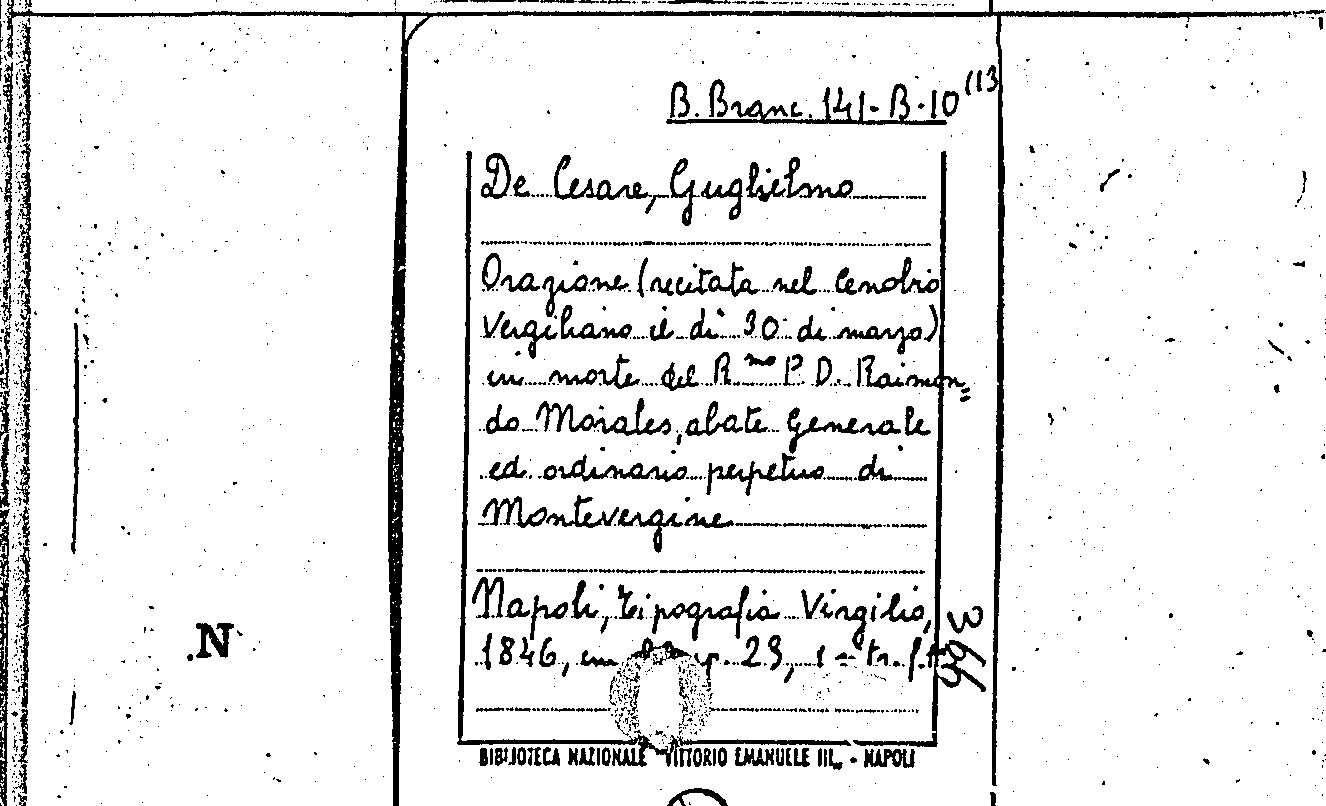 B. Branc. 141-B-10 (13
De Cesare, Guglielmo
Orazione (recitata nel Cenobio
Vergiliano il dì 30 di marzo)
in morte del R.mo P. D. Raimon=
do Morales, abate Generale
ed ordinario perpetuo di
Montevergine
Napoli, Tipografia Virgilio,
1846, in p. 23, 1 tr. f.t.
366
N
BIBLIOTECA NAZIONALE "VITTORIO EMANUELE III„ - NAPOLI